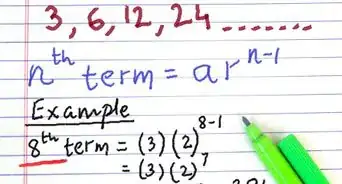 3, 6, 12, 24 .......
nth term = ar^n-1
Example
8th term = (3)(2)^8-1
= (3)(2)^7